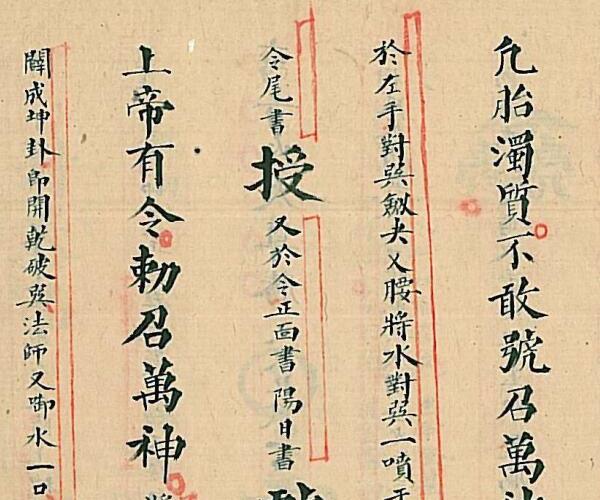 凢胎濁質不敢號召萬
於左手對巽劔夬乂腰將水對巽一噴于
令尾書授又於令正面書陽日書
上帝有令勅召萬神
闢成坤卦即開乾破巽法師又啣水一口